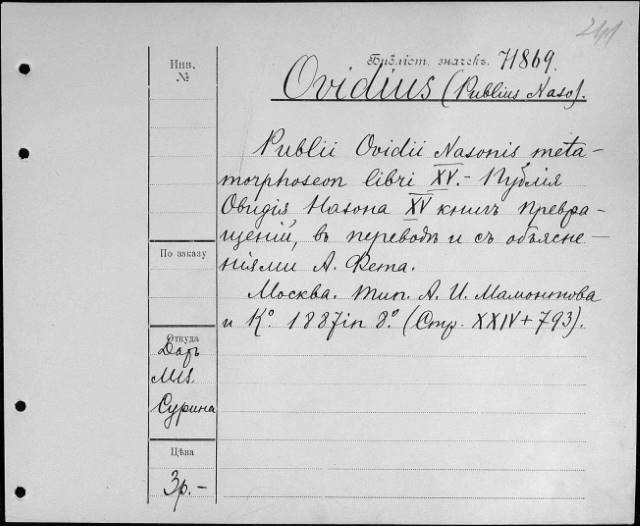 241
Библіот. значекъ. 71869.
Ovidius (Publius Naso).
Инв.
№
Publii Ovidii Nasonis meta-
morphoseon libri XV. - Публія
Овидія Назона XV книгъ превра-
щеній, въ переводѣ и съ объясне-
ніями А. Фета.
Москва. Тип. А. И. Мамонтова
и Ко. 1887 in 8o. (Стр. XXIV + 793).
По заказу
Откуда
Даръ
Сурина
Цѣна
3р. -